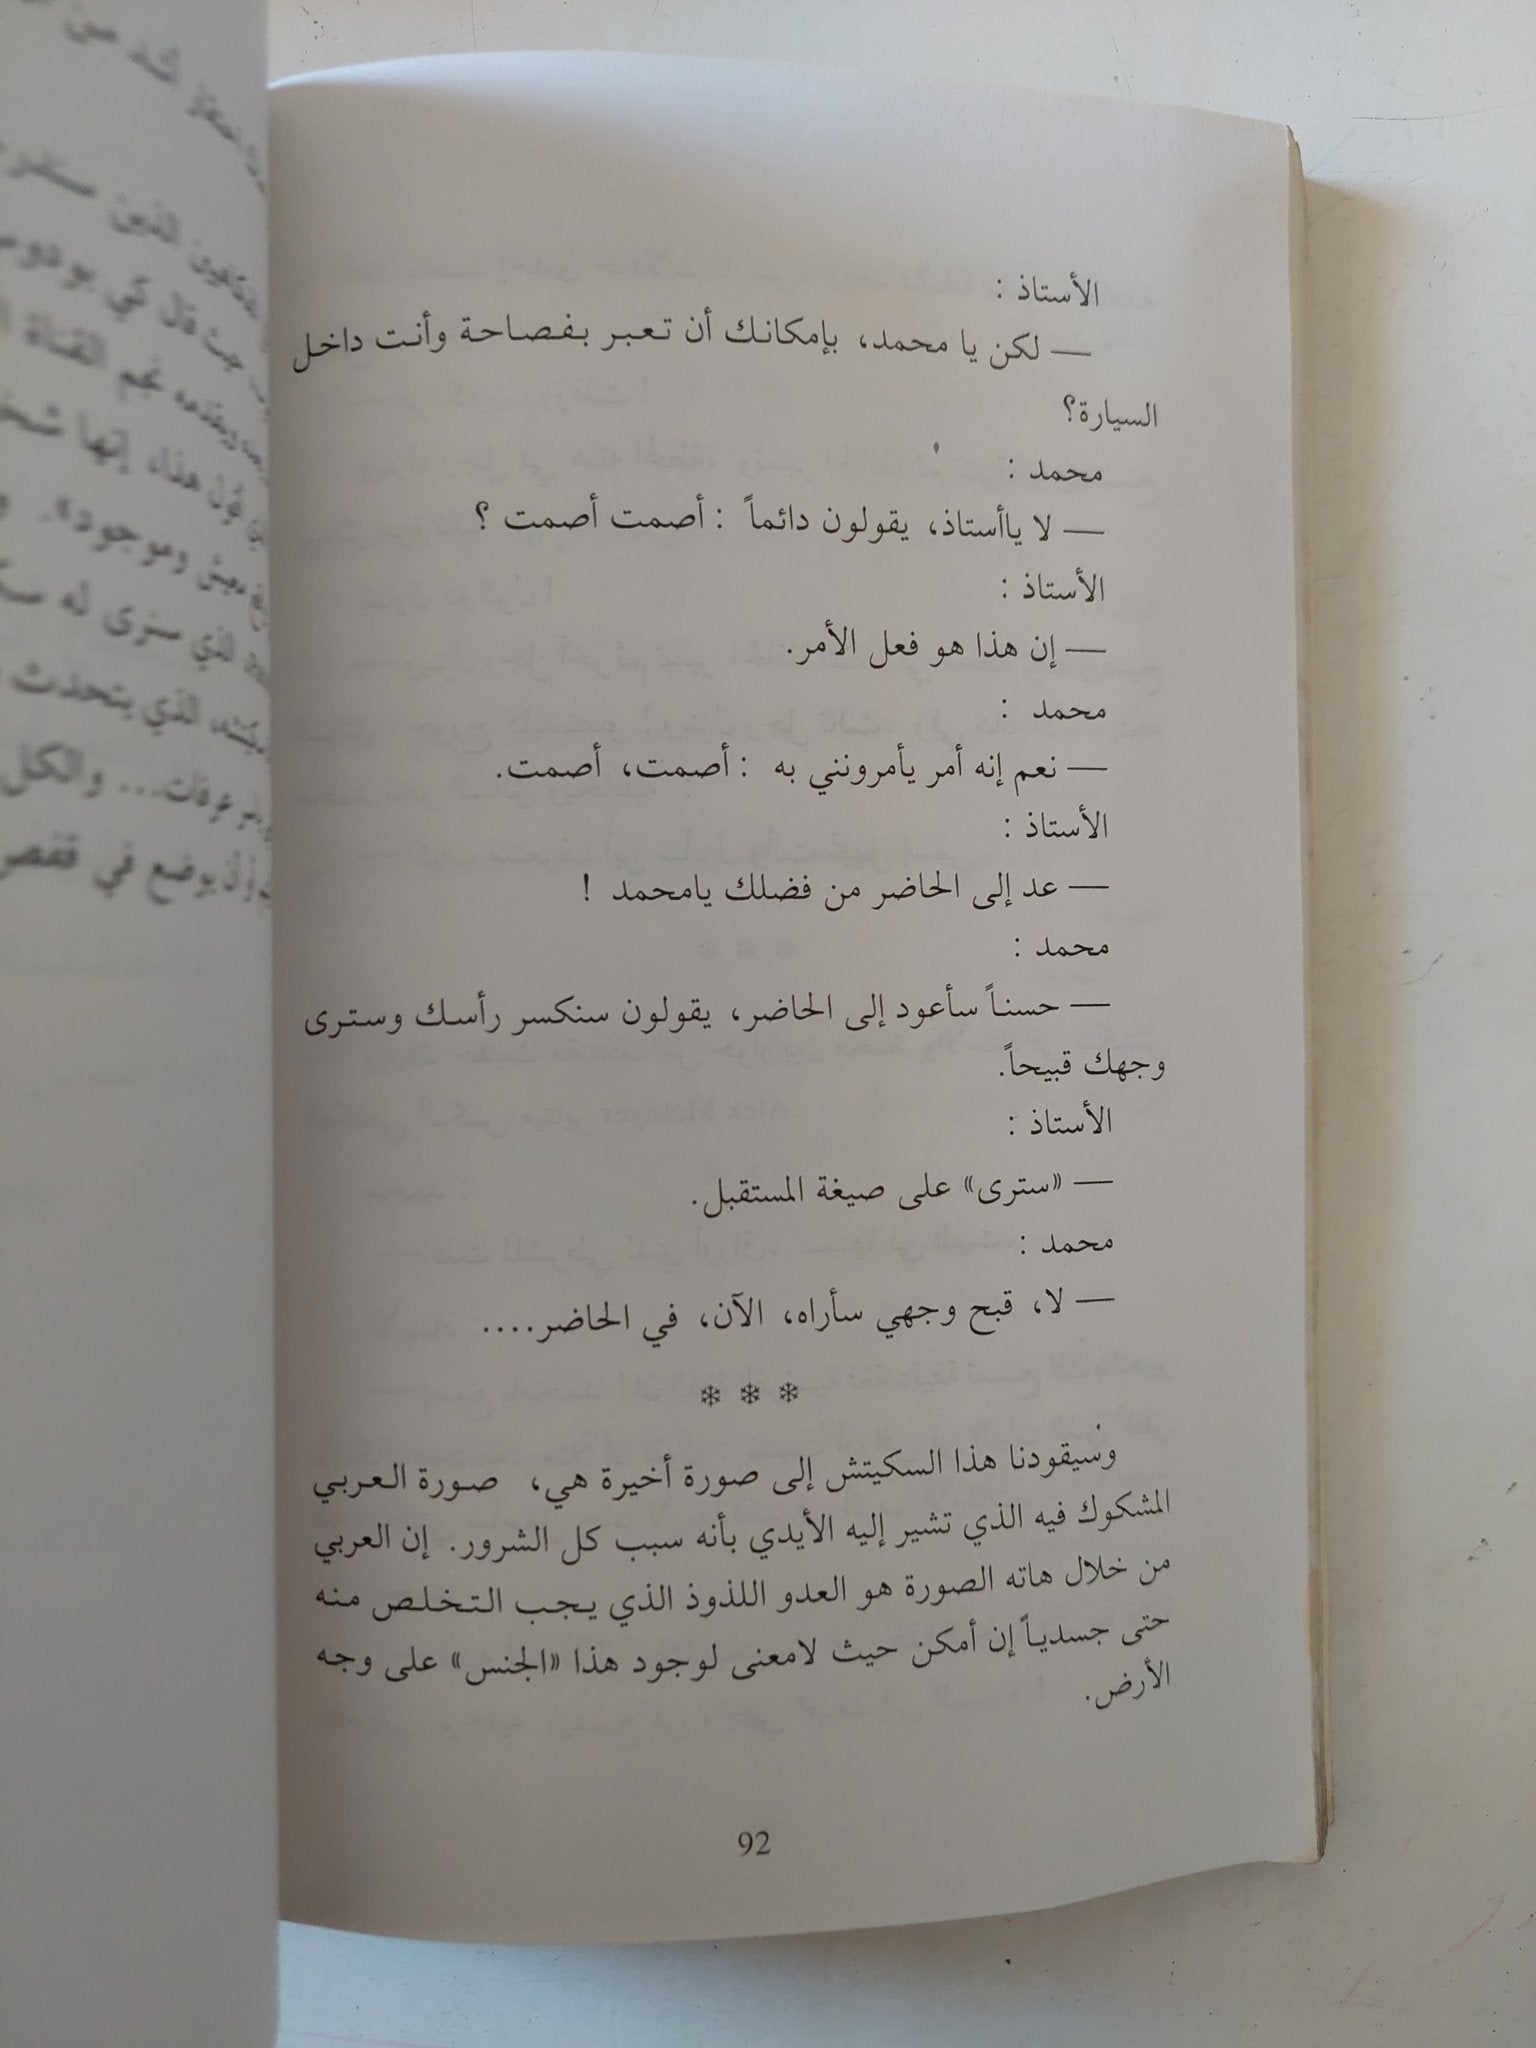 الأستاذ :
— لكن يا محمد، بإمكانك أن تعبر بفصاحة وأنت داخل
السيارة؟
محمد :
— لا ياأستاذ، يقولون دائماً : أصمت أصمت ؟
الأستاذ :
— إن هذا هو فعل الأمر.
محمد :
— نعم إنه أمر يأمرونني به : أصمت، أصمت.
الأستاذ :
— عد إلى الحاضر من فضلك يامحمد !
محمد :
— حسناً سأعود إلى الحاضر، يقولون سنكسر رأسك وسترى
وجهك قبيحاً.
الأستاذ :
— «سترى» على صيغة المستقبل.
محمد :
— لا، قبح وجهي سأراه، الآن، في الحاضر....
* * *
وسيقودنا هذا السكيتش إلى صورة أخيرة هي، صورة العربي
المشكوك فيه الذي تشير إليه الأيدي بأنه سبب كل الشرور. إن العربي
من خلال هاته الصورة هو العدو اللذوذ الذي يجب التخلص منه
حتى جسدياً إن أمكن حيث لامعنى لوجود هذا «الجنس» على وجه
الأرض.
92
شد من
الذين
قال كي بودوم
نجم القناة
هذا، إنها
وموجود».
الذي سنرى له
الذي يتحدث
... والكل
أن يوضع في قفص